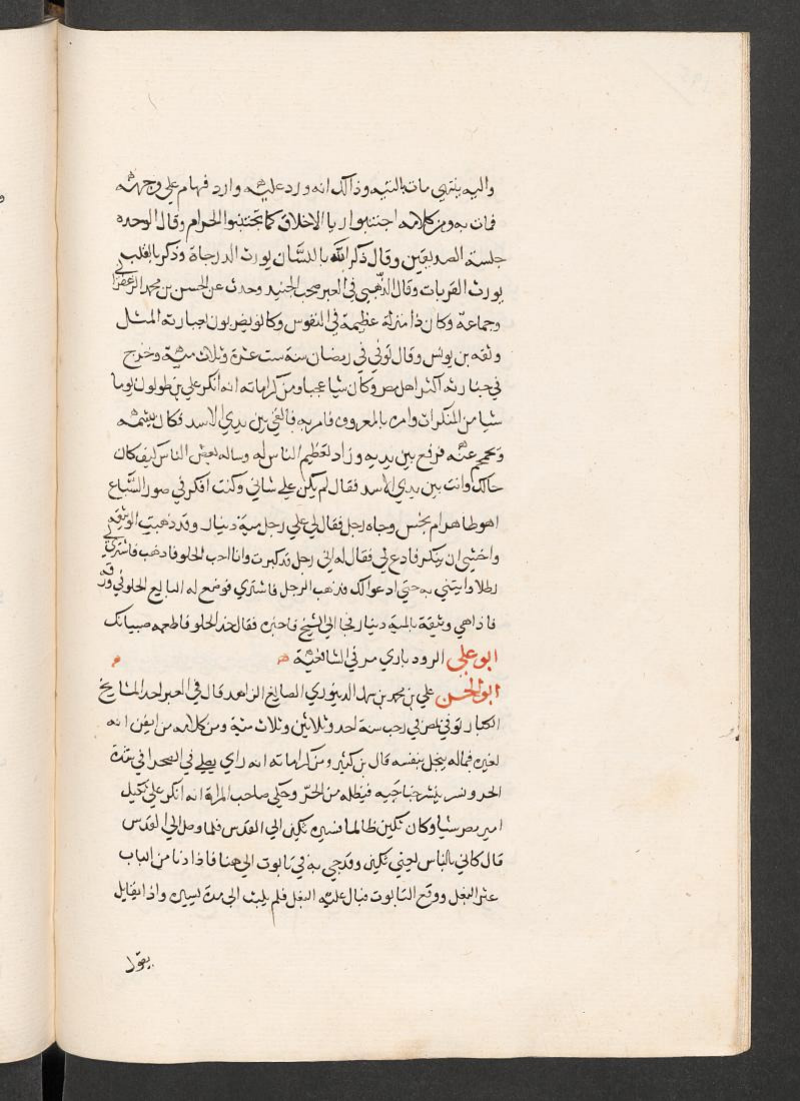 واليه ينتهي مات بالتيه وذالك انه ورد عليه وارد فهام علي وجهه
فمات به ومن كلامه اجتنبوا ريا الاخلاق كما تجتنبوا الحرام وقال الوحده
جلسة الصديقين وقال ذكر الله باللسان يورث الدرجاة وذكر بالقلب
يورث القربات وقال الذهبي في العبر صحب الجنيد وحدث عن الحسن بن محمد الزعفراني
وجماعة وكان ذا منزلة عظيمة في النفوس وكانو يضربون بعبارته المثل
وثقه بن يونس وقال توفي في رمضان سنة ست عشرة وثلاث مئية وخرج
في جنازته اكثر اهل مصر وكان شيا عجبا ومن كراماته انه انكر علي بن طولون يوما
شيا من المنكرات وامره بالمعروف فامر به فالقي بين يدي الاسد فكان يشمه
ويحجم عنه فرفع بين يديه وزاد تعظيم الناس له وساله بعض الناس كيف كان
حالك وانت بين يدي الاسد فقال لم يكن علي شاني وكنت افكر في صور السباع
اهو طاهر ام نجس وجاه رجل فقال لي علي رجل مية دينار وقد ذهبت الوثيقه
واخشي ان ينكر فادع لي فقال له اني رجل قد كبرت وانا احب الحلو فاذهب فاشتري لي
رطلا وايتني به حتي ادعوا لك فذهب الرجل فاشتري فوضع له البايع الحلو في ورقه
فاذا هي وثيقة بالمية دينار فجا الي الشيخ فاخبره فقال خذ الحلو فاطعمه صبيانك
ابو علي الرودباري مر في الشافعية
ابو الحسن علي بن محمد بن سهل الدينوري الصايغ الزاهد قال في العبر احد المشايخ
الكبار توفي بمصر في رجب سنة احد وثلاثين وثلاث مئية ومن كلامه من ايقن انه
لغيره فماله يبخل بنفسه قال بن كثير ومن كراماته انه راي يصلي في الصحرا في شدة
الحر ونسر ينشر جناحيه فيظله من الحر وحكي صاحب المراة انه انكر علي تكين
امير مصر شيا وكان تكين ظالما فسيره تكين الي القدس فلما وصل الي القدس
قال كاني بالناس يعني تكين وقد جي به في تابوت الي هنا فاذا دنا من الباب
عثر البغل ووقع التابوت فبال عليه البغل فلم يلبث الي مدة يسيره واذا بقايل
يقول